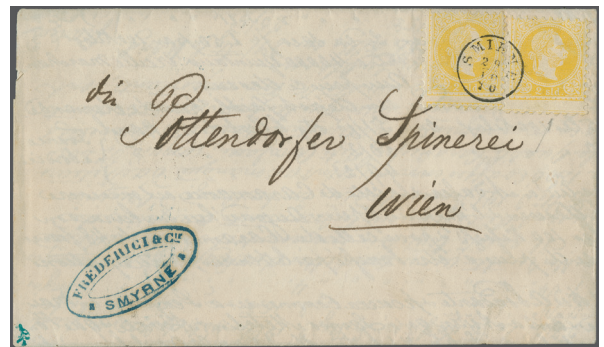 SMIRNE
28
10
70
die
Pottendorfer Spinerei
Wien
FREDERICI & Cie
SMYRNE